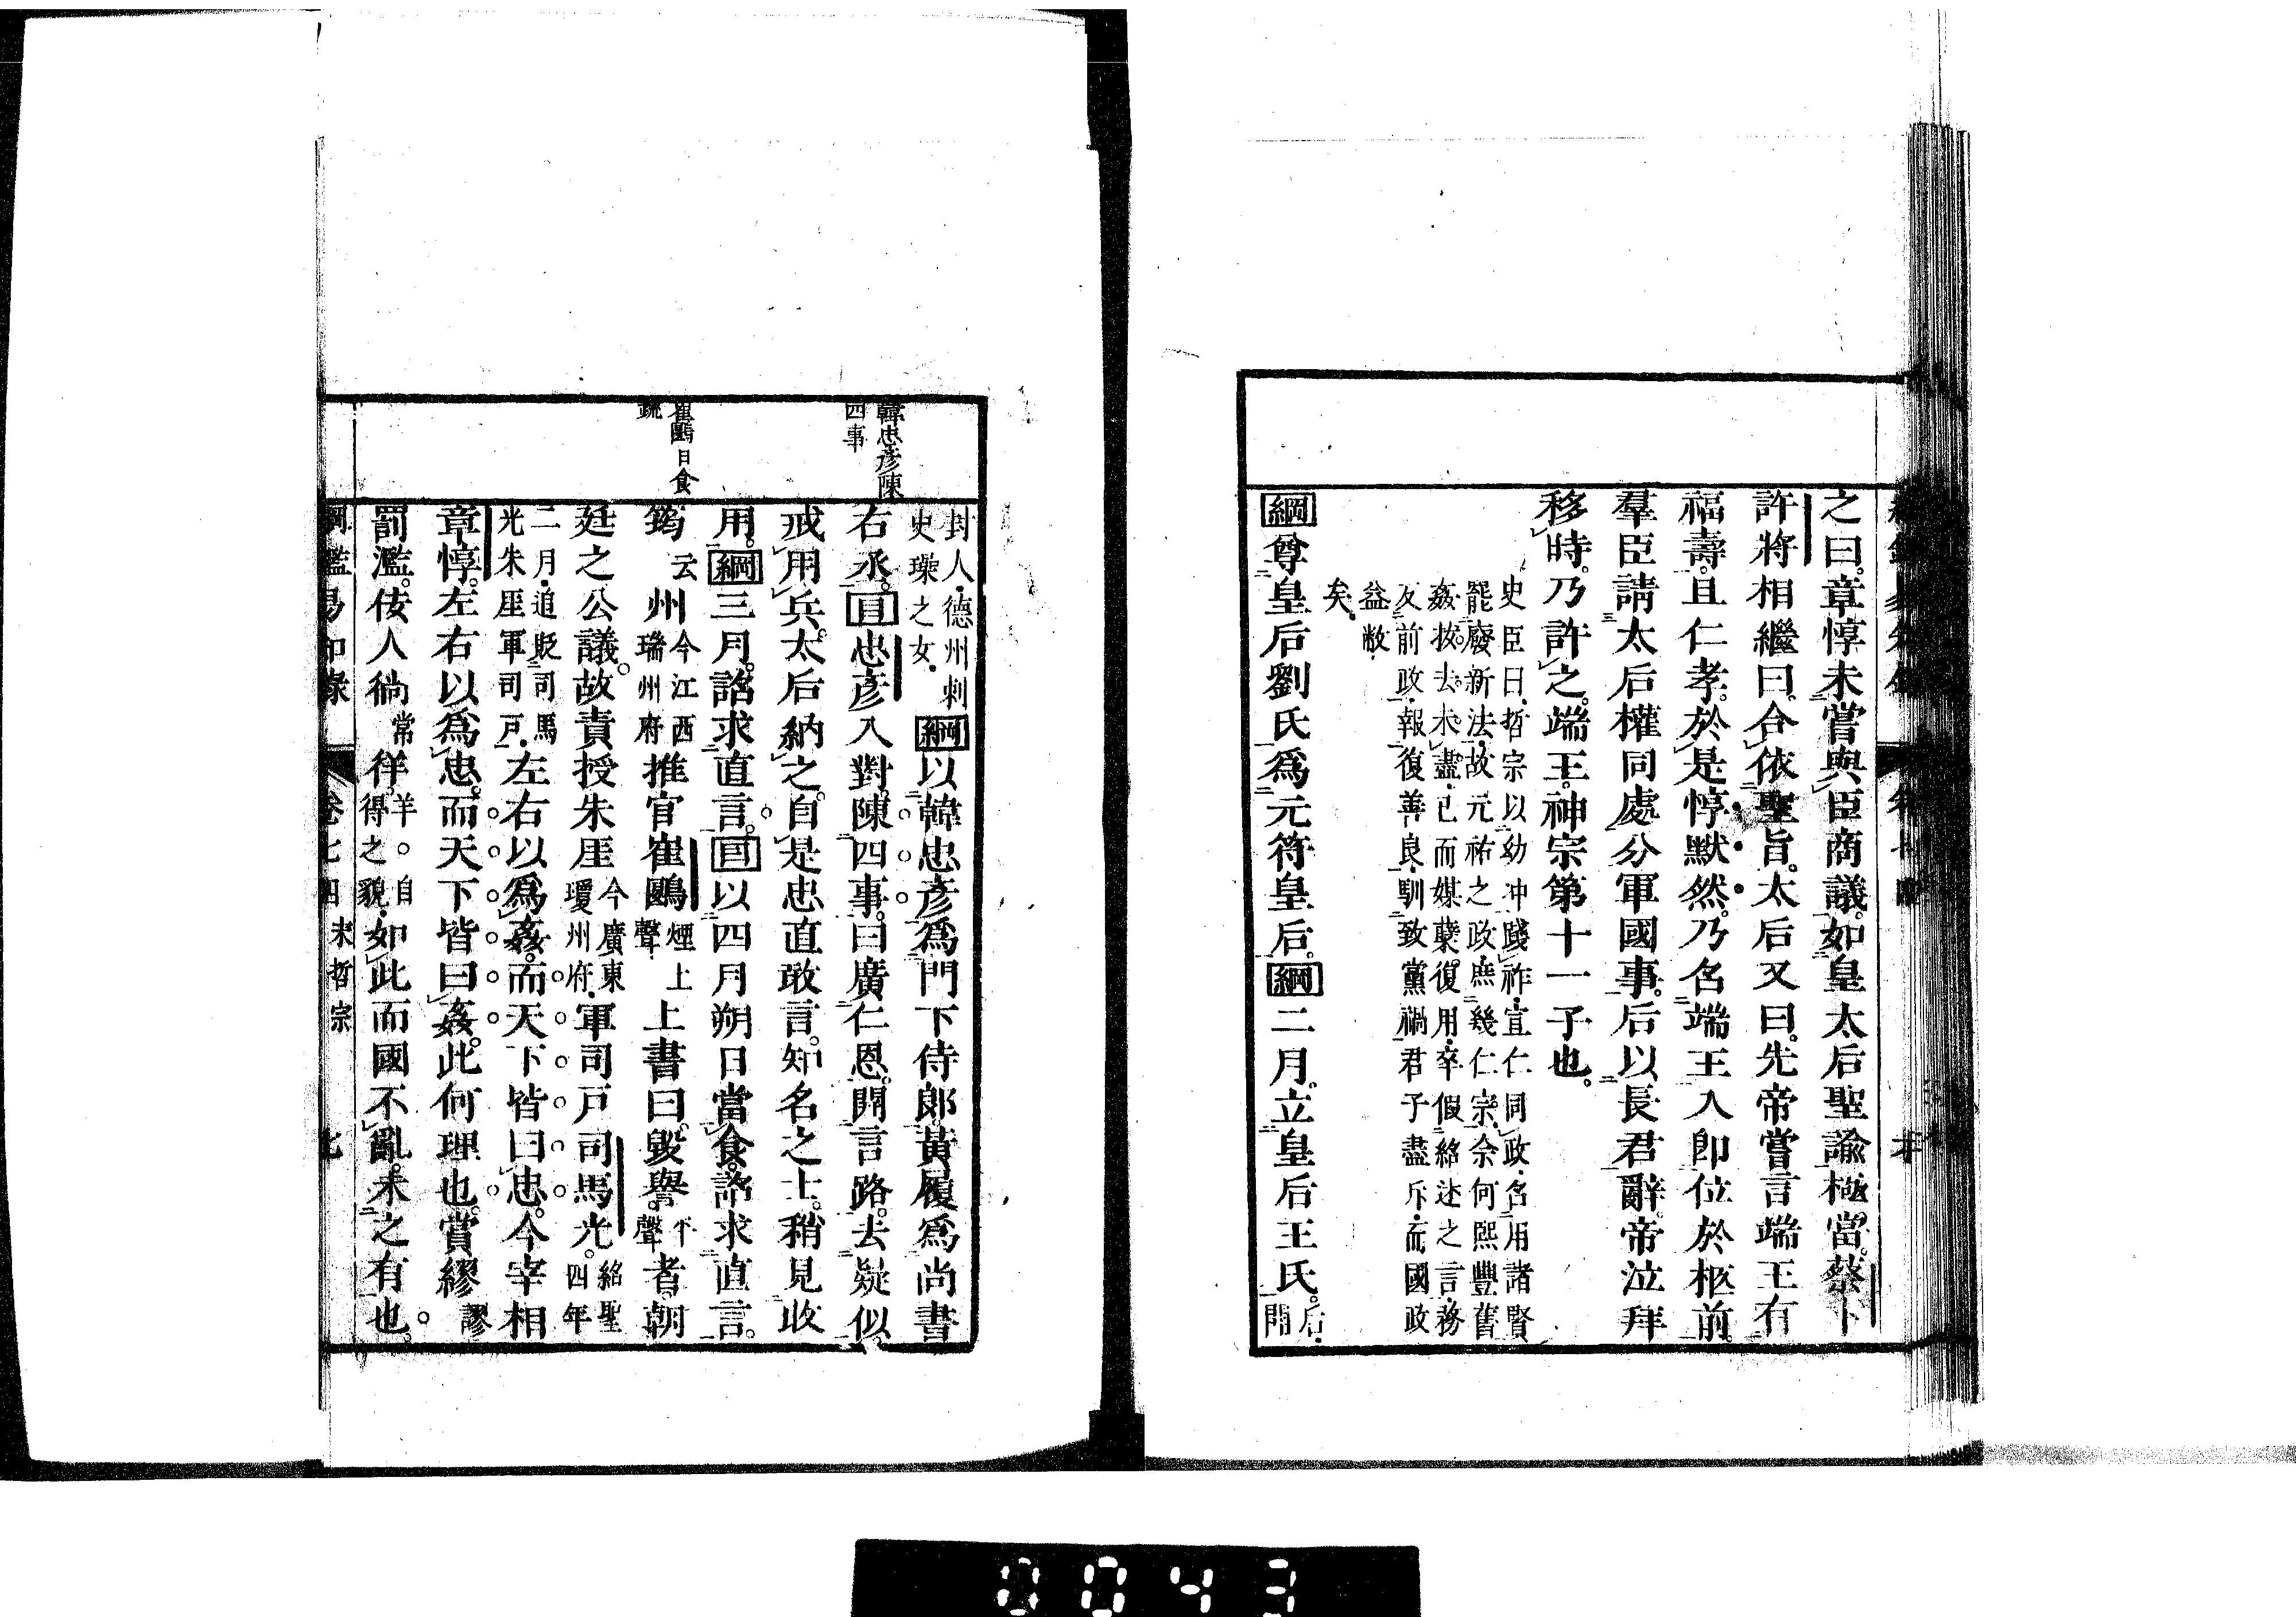 之曰。章惇未嘗與臣商議。如皇太后聖諭極當。蔡卞
許將相繼曰。合依聖旨。太后又曰。先帝嘗言端王有
福壽。且仁孝。於是惇默然。乃名端王入卽位於柩前。
羣臣請太后權同處分軍國事。后以長君辭。帝泣拜
移時。乃許之。端王。神宗第十一子也。
史臣曰。哲宗以幼冲踐祚。宣仁同政。名用諸賢
罷廢新法。故元祐之政。庶幾仁宗。余何熙豐舊
姦拔去。未盡。已而媒蘖。復用。卒假紹述之言。務
反前政。報復善良。馴致黨禍。君子盡斥。而國政
益敝
矣。
綱尊皇后劉氏爲元符皇后。綱二月。立皇后王氏。后。
開
封人。德州刺
史㻮之女。
綱以韓忠彥爲門下侍郎。黃履爲尚書
韓忠彥陳
四事
右丞。目忠彥入對。陳四事。曰廣仁恩。開言路。去疑似。
戒用兵。太后納之。自是忠直敢言。知名之士。稍見收
用。綱三月。詔求直言。目以四月朔日當食。詔求直言。
崔鶠日食
疏
筠云州今江西
瑞州府推官崔鶠煙上
聲上書曰。毀譽平
聲者。朝
廷之公議。故責授朱厓今廣東
瓊州府。軍司戸司馬光。紹聖
四年
二月。追貶司馬
光朱厓軍司戸。左右以爲姦。而天下皆曰忠。今宰相
章惇。左右以爲忠。而天下皆曰姦。此何理也。賞繆謬
罰濫。佞人徜常徉。羊。自
得之貌。如此而國不亂。未之有也。
綱鑑易知錄 卷七四 宋哲宗